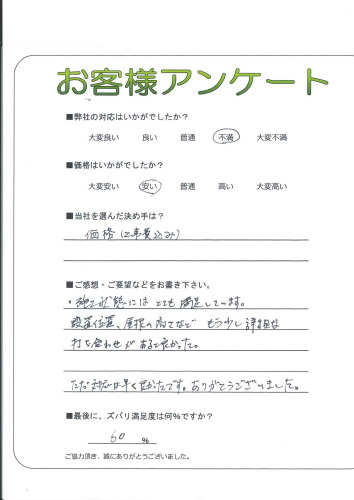 お客様アンケート
■弊社の対応はいかがでしたか？
大変良い 良い 普通 不満 大変不満
■価格はいかがでしたか？
大変安い 安い 普通 高い 大変高い
■当社を選んだ決め手は？
価格(工事費込み)
■ご感想・ご要望などをお書き下さい。
・施工状態には とても 満足しています。
設置位置、屋根の高さなど もう少し 詳細な
打ち合わせが あると良かった。
ただ対応は早く良かったです。ありがとうございました。
■最後に、ズバリ満足度は何％ですか？
60 ％
ご協力頂き、誠にありがとうございました。